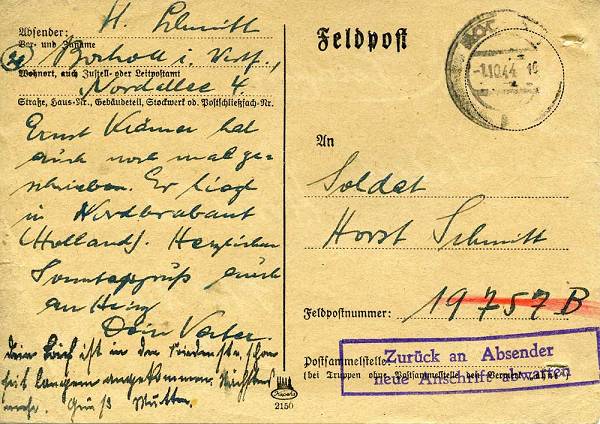 Absender:
H. Schmitt
Vor- und Zuname
Bocholt i. Westf.,
Wohnort, auch Zustell- oder Leitpostamt
Nordallee 4.
Straße, Haus-Nr., Gebäudeteil, Stockwerk od. Postschließfach-Nr.
Ernst Krämer hat
auch noch mal ge-
schrieben. Er liegt
in Nordbrabant
(Holland). Herzlichen
Sonntagsgruß auch
an Heinz
Dein Vater
Dein ist in der Friedenstr. schon
seit langem angekommen.
mehr. Gruß Mutter.
2150
Feldpost
-1.10.44
An
Soldat
Horst Schmitt
Feldpostnummer: 19757 B
Postsammelstelle
(bei Truppen ohne Postsammelstelle
Zurück an Absender
neue Anschrift abwarten